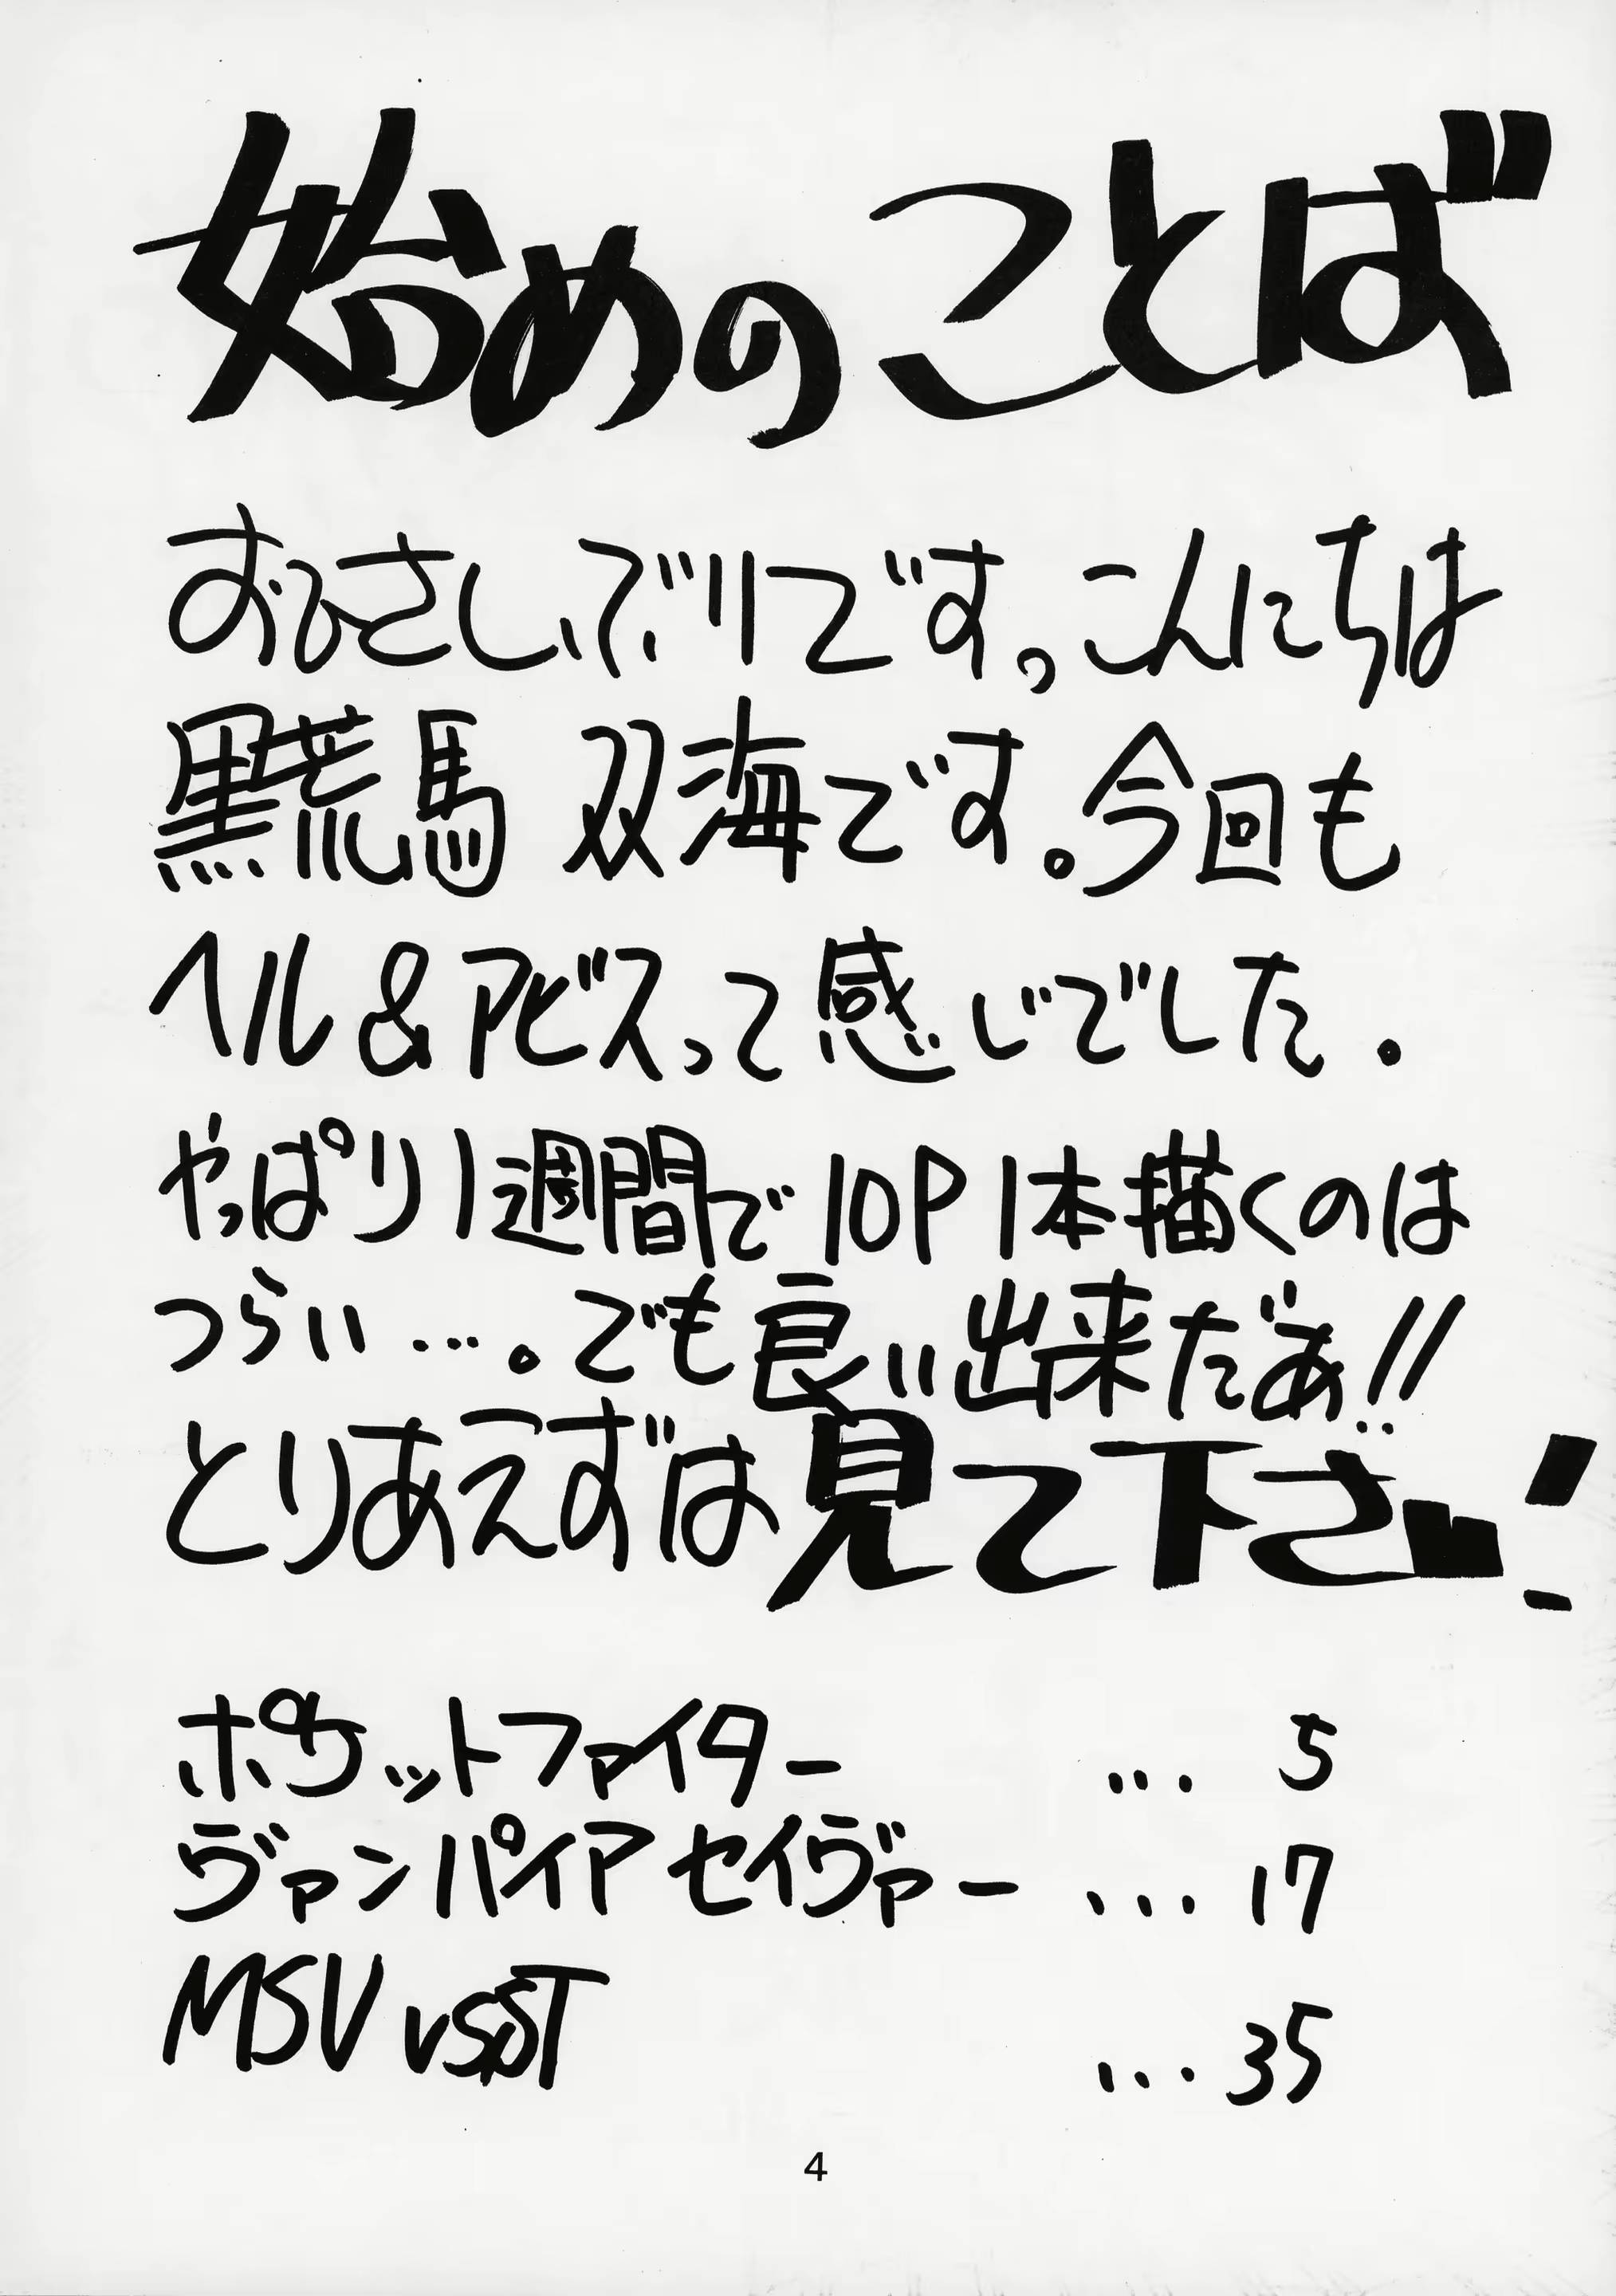 始めのことば
おひさしぶりです。こんにちは
黒荒馬 双海です。今回も
ヘル&アビスって感じでした。
やっぱり1週間で10P1本描くのは
つらい…。でも良い出来だぁ!!
とりあえずは見て下さい!
ポケットファイター … 5
ヴァンパイアセイヴァー … 17
MSV vs ST … 35
4